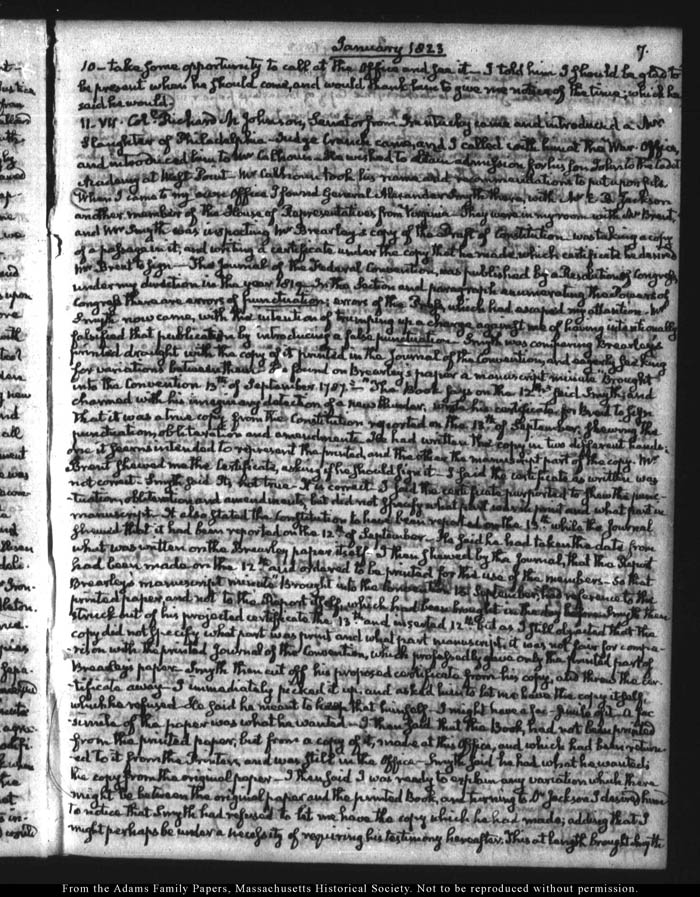 January 1823
7.
10— take some opportunity to call at the Office and see it— I told him I should be glad to
be present when he should come, and would thank him to give me notice of the time; which he
said he would.
11. VII. Col. Richard M. Johnson, Senator from Kentucky came and introduced a Mr
Slaughter of Philadelphia— Judge Cranch came, and I called with him at the War-Office,
and introduced him to Mr Calhoun— He wished to obtain admission for his son John to the Cadet
Academy at West-Point— Mr Calhoun took his name and recommendations to put upon file.
When I came to my own Office I found General Alexander Smyth there, with Mr E. B. Jackson
another member of the House of Representatives from Virginia— They were in my room with Mr Brent—
and Mr Smyth was inspecting Mr Brearley's copy of the Draft of Constitution, was taking a copy
of a passage in it, and writing a certificate under the copy that he made, which certificate he desired
Mr Brent to sign— The Journal of the Federal Convention, was published by a Resolution of Congress
under my direction in the year 1819— In the Section and paragraph enumerating the Powers of
Congress there are errors of punctuation; errors of the Press, which had escaped my attention— Mr
Smyth now came, with the intention of trumping up a charge against me of having intentionally
falsified that publication by introducing a false punctuation. Smyth was comparing Brearley's
printed draught with the copy of it printed in the Journal of the Convention, and eagerly seeking
for variations between them— He found on Brearley's paper a manuscript minute "Brought
into the Convention 13th of September 1787."— "The Book says on the 12th" said Smyth; and
charmed with his imaginary detection of a new blunder, wrote his certificate for Brent to sign
that it was a true copy from the Constitution reported on the 13th of September, shewing the
punctuation, obliteration and amendments. He had written the copy in two different hands;
one it seems intended to represent the printed, and the other the manuscript part of the copy. Mr
Brent shewed me the Certificate, asking if he should sign it— I said the certificate as written was
not correct— Smyth said Its not true— It is correct— I said the certificate purported to shew the punc-
-tuation, obliteration and amendments, but did not specify what part was in print and what part in
manuscript— It also stated the Constitution to have been reported on the 13th while the Journal
shewed that it had been reported on the 12th of September— He said he had taken the date from
what was written on the Brearley paper itself— I then shewed by the Journal, that the Report
had been made on the 12th and ordered to be printed for the use of the members— so that
Brearley's manuscript minute Brought into the Convention 13 September, had reference to the
printed paper, and not to the Report itself, which had been brought in the day before. Smyth then
struck out of his projected certificate the 13th and inserted 12th but as I still objected that the
copy did not specify what part was print and what part manuscript, it was not fair for compa-
-rison with the printed Journal of the Convention, which professedly gave only the printed part of
Brearley's paper— Smyth then cut off his proposed certificate from his copy, and threw the Cer-
-tificate away— I immediately picked it up, and asked him to let me have the copy itself,
which he refused— He said he meant to keep that himself— I might have a fac-simile of it. A fac
-simile of the paper was what he wanted— I then said that the Book, had not been printed
from the printed paper, but from a copy of it, made at this Office, and which had been return-
-ed to it from the Printers, and was still in the Office— Smyth said he had what he wanted;
the copy from the original paper— I then said I was ready to explain any variation which there
might be between the original paper and the printed Book, and turning to Dr Jackson I desired him
to notice that Smyth had refused to let me have the copy which he had made; adding that I
might perhaps be under a necessity of requiring his testimony hereafter. This at length brought Smyth
From the Adams Family Papers, Massachusetts Historical Society. Not to be reproduced without permission.